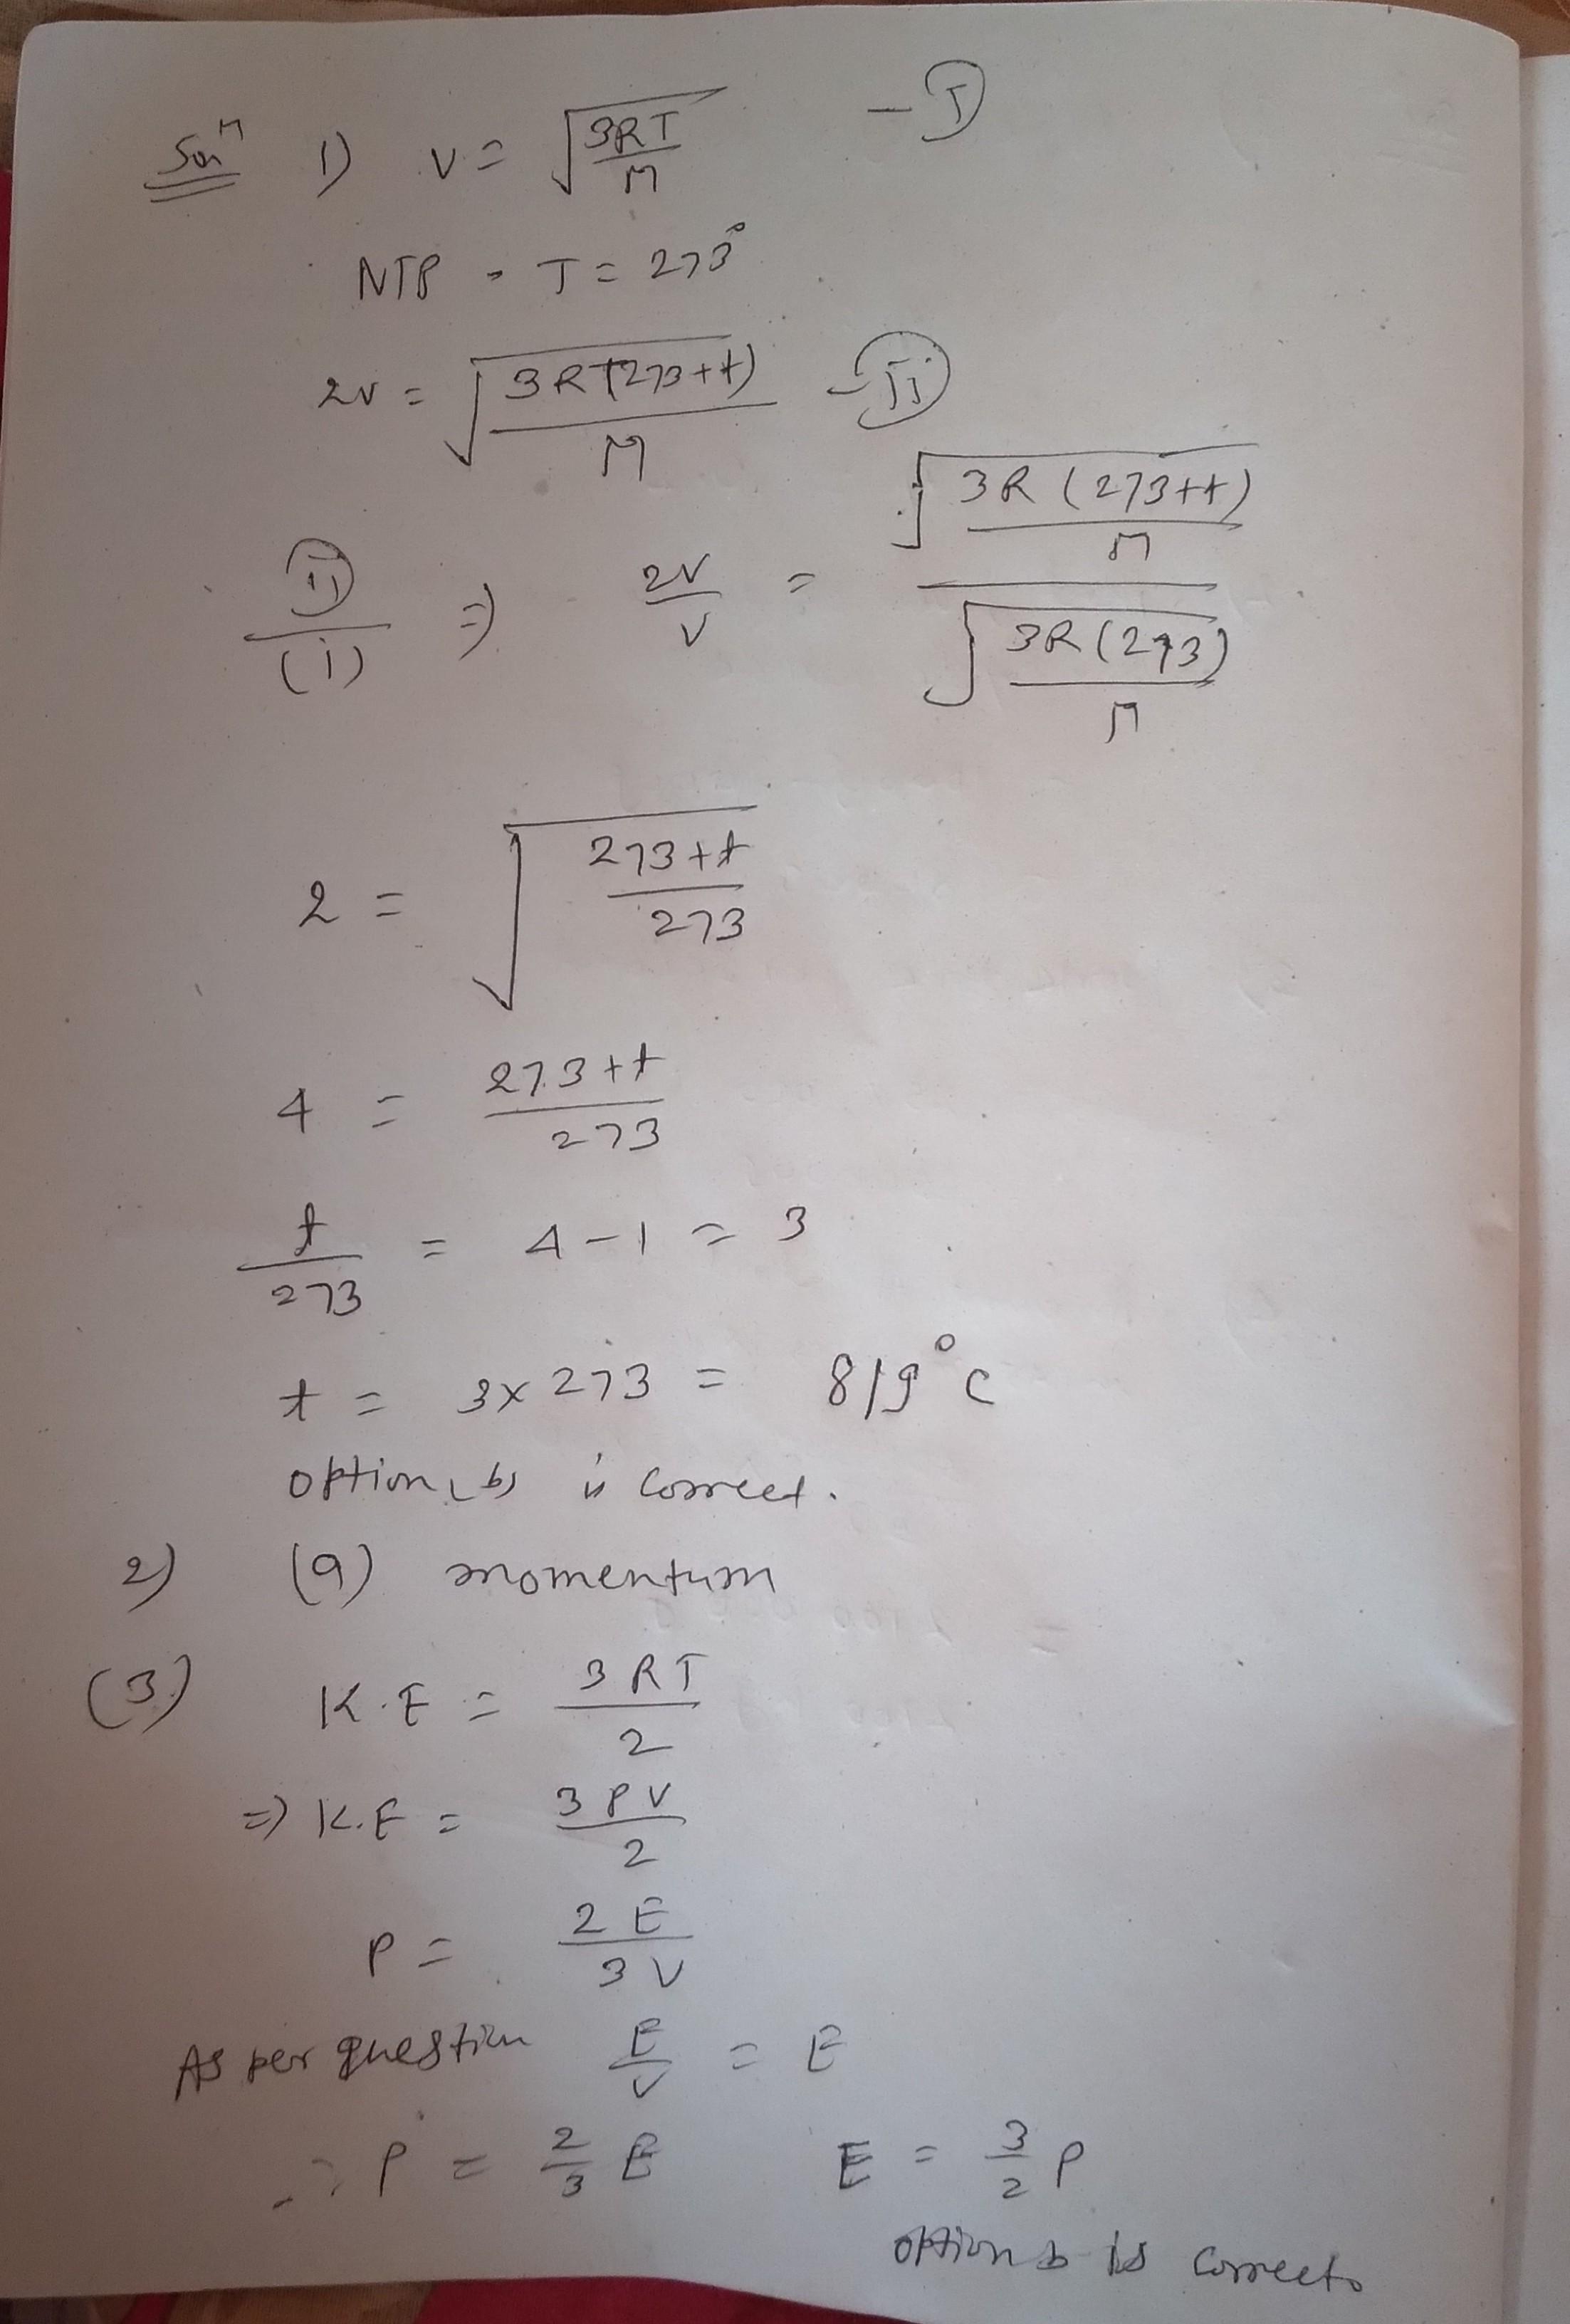 Solⁿ 1) v = √(3RT/M) - (I)
NTP , T = 273°
2v = √(3RT(273+t)/M) - (ii)
(ii)/(i) ⇒ 2v/v = √(3R(273+t)/M) / √(3R(273)/M)
2 = √((273+t)/273)
4 = (273+t)/273
t/273 = 4-1 = 3
t = 3×273 = 819°c
option (b) is correct.
2) (a) momentum
(3) K.E = 3RT/2
⇒ K.E = 3PV/2
P = 2E/3V
As per question E/V = E
∴ P = 2/3 E E = 3/2 P
option b is correct.